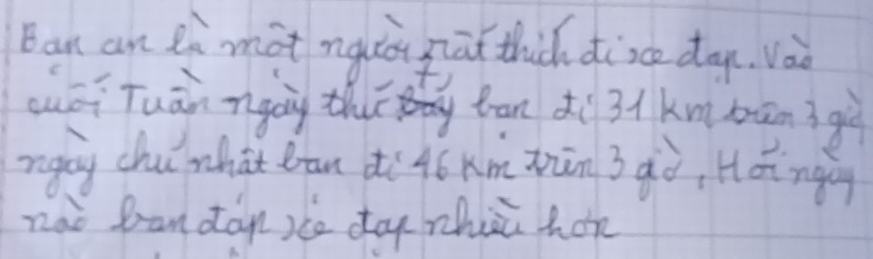 Bạn an là một người rất thích đi xe đạp. Vào
cuối Tuần ngày thứ bảy bạn đi 31 km trên 3 giờ
ngày chủ nhật bạn đi 46 km trên 3 giờ, Hỏi ngày
nào bạn đạp xe đạp nhiều hơn